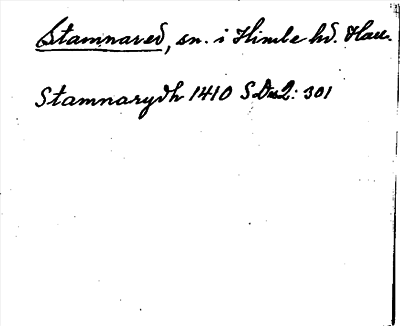 Stamnared, sn. i Himle hd. Hall.
Stamnarydh 1410 SDns2: 301